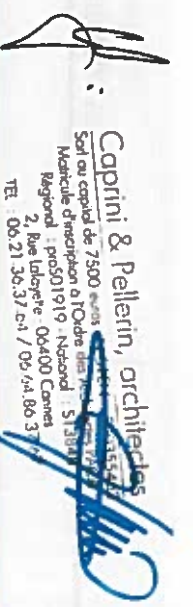 Caprini & Pellerin, architectes
Sarl au capital de 7500 euros
Matricule d'inscription à l'Ordre des
Régional : pro501919 - National : S13840
2, Rue Lafayette - 06400 Cannes
Tél : 06.21.36.37.64 / 06.64.86.37